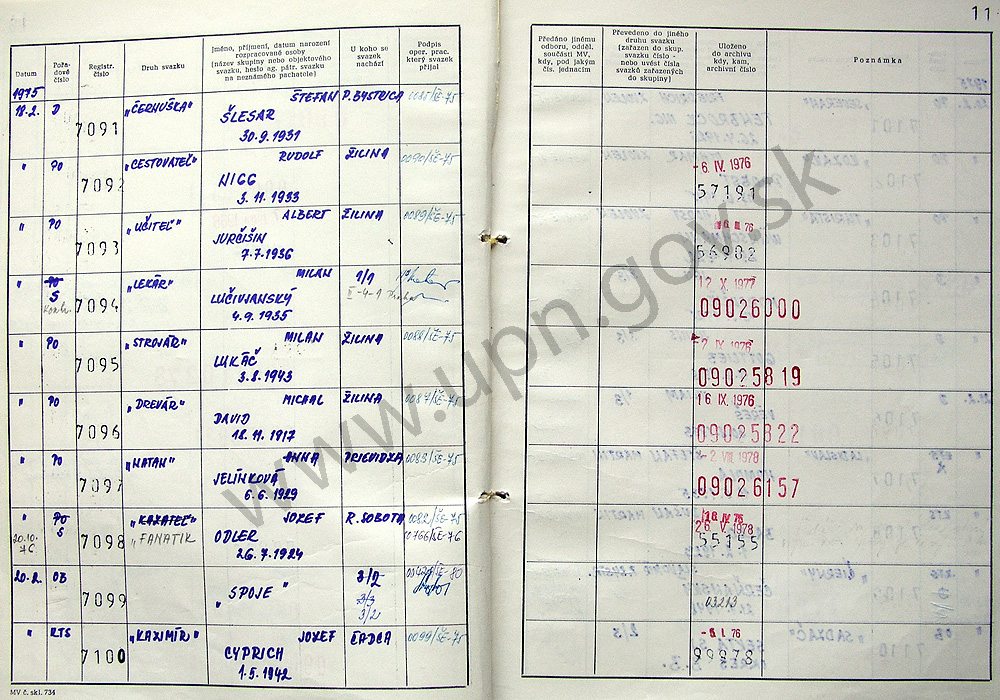 11
Datum
Pořadové číslo
Registr. číslo
Druh svazku
Jméno, příjmení, datum narození rozpracované osoby (název skupiny nebo objektového svazku, heslo ag. pátr. svazku na neznámého pachatele)
U koho se svazek nachází
Podpis oper. prac. který svazek přijal
Předáno jinému odboru, odděl. součásti MV, kdy, pod jakým čís. jednacím
Převedeno do jiného druhu svazku (zařazen do skup. svazku číslo - nebo uvést čísla svazků zařazených do skupiny)
Uloženo do archivu kdy, kam, archivní číslo
Poznámka
1975
18.2. D 7091 „ČERNUŠKA" ŠTEFAN ŠLESAR 30.9.1931 P. BYSTRICA 0085/ŠE-75
" PO 7092 „CESTOVATEĽ" RUDOLF NIGG 3.11.1933 ŽILINA 0090/ŠE-75 -6. IV. 1976 57191
" PO 7093 „UČITEĽ" ALBERT JURČIŠIN 7.7.1936 ŽILINA 0089/ŠE-75 III 76 56902
" PO S 7094 „LEKÁR" MILAN LUČIVJANSKÝ 4.9.1935 1/1 II-4-1 12 X 1977 09026000
" PO 7095 „STROJÁR" MILAN LUKÁČ 3.8.1943 ŽILINA 0086/ŠE-75 1976 09025819
" PO 7096 „DREVÁR" MICHAL DAVID 18.11.1917 ŽILINA 0087/ŠE-75 16 IX. 1976 09025822
" PO 7097 „NATAN" ANNA JELÍNKOVÁ 6.6.1929 PRIEVIDZA 0083/ŠE-75 -2 VIII 1978 09026157
" PO S 7098 „KAZATEĽ" „FANATIK" JOZEF ODLER 26.7.1924 R. SOBOTA 0082/ŠE-75
20.10. 76 00766/ŠE-76 26. V. 1978 55155
20.2. OB 7099 „SPOJE" 3/2 3/3 3/2 03213
" KTS 7100 „KAZIMÍR" JOZEF CYPRICH 1.5.1942 ČADCA 0099/ŠE-75 76
MV č. skl. 734
www.upn.gov.sk